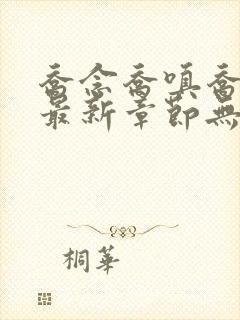 喬念喬嗔喬
最新章節無
桐華